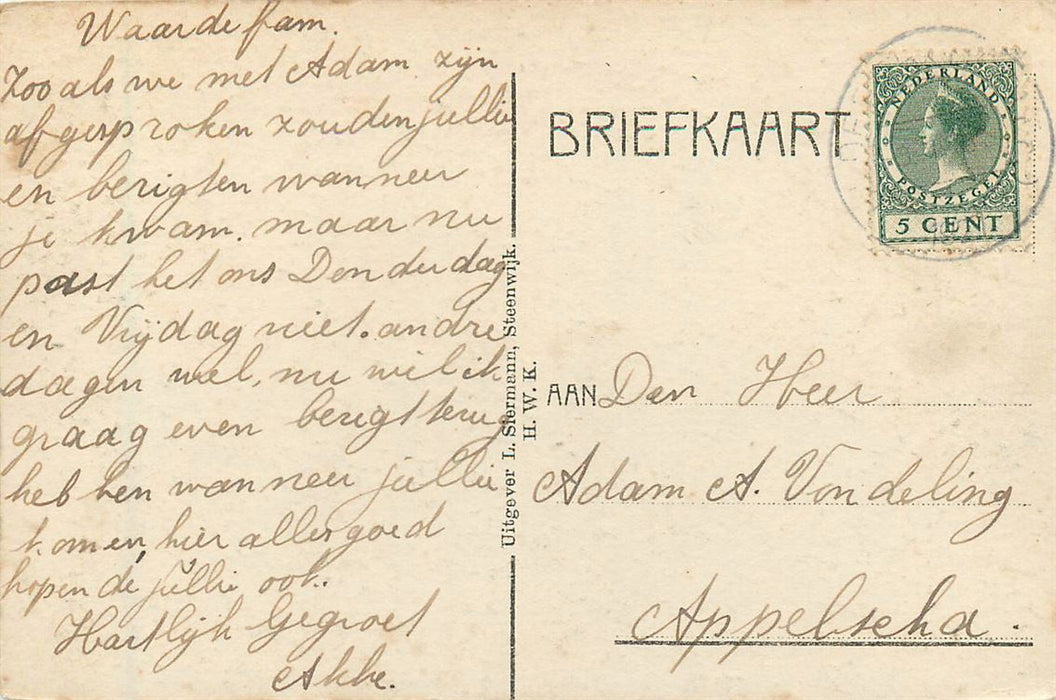 Waarde fam.
Zooals we met Adam zijn
afgesproken zouden jullie
en berigten wanneer
je kwam. maar nu
past het ons Donderdag
en Vrijdag niet. andre
dagen wel, nu wil ik
graag even berigt terug
hebben wanneer jullie
komen, hier alles goed
hopende jullie ook.
Hartlijk Gegroet
Akke.
Uitgever L. Siermann, Steenwijk.
H. W. K.
BRIEFKAART
NEDERLAND
POSTZEGEL
5 CENT
AAN Den Heer
Adam A. Vondeling
Appelscha.